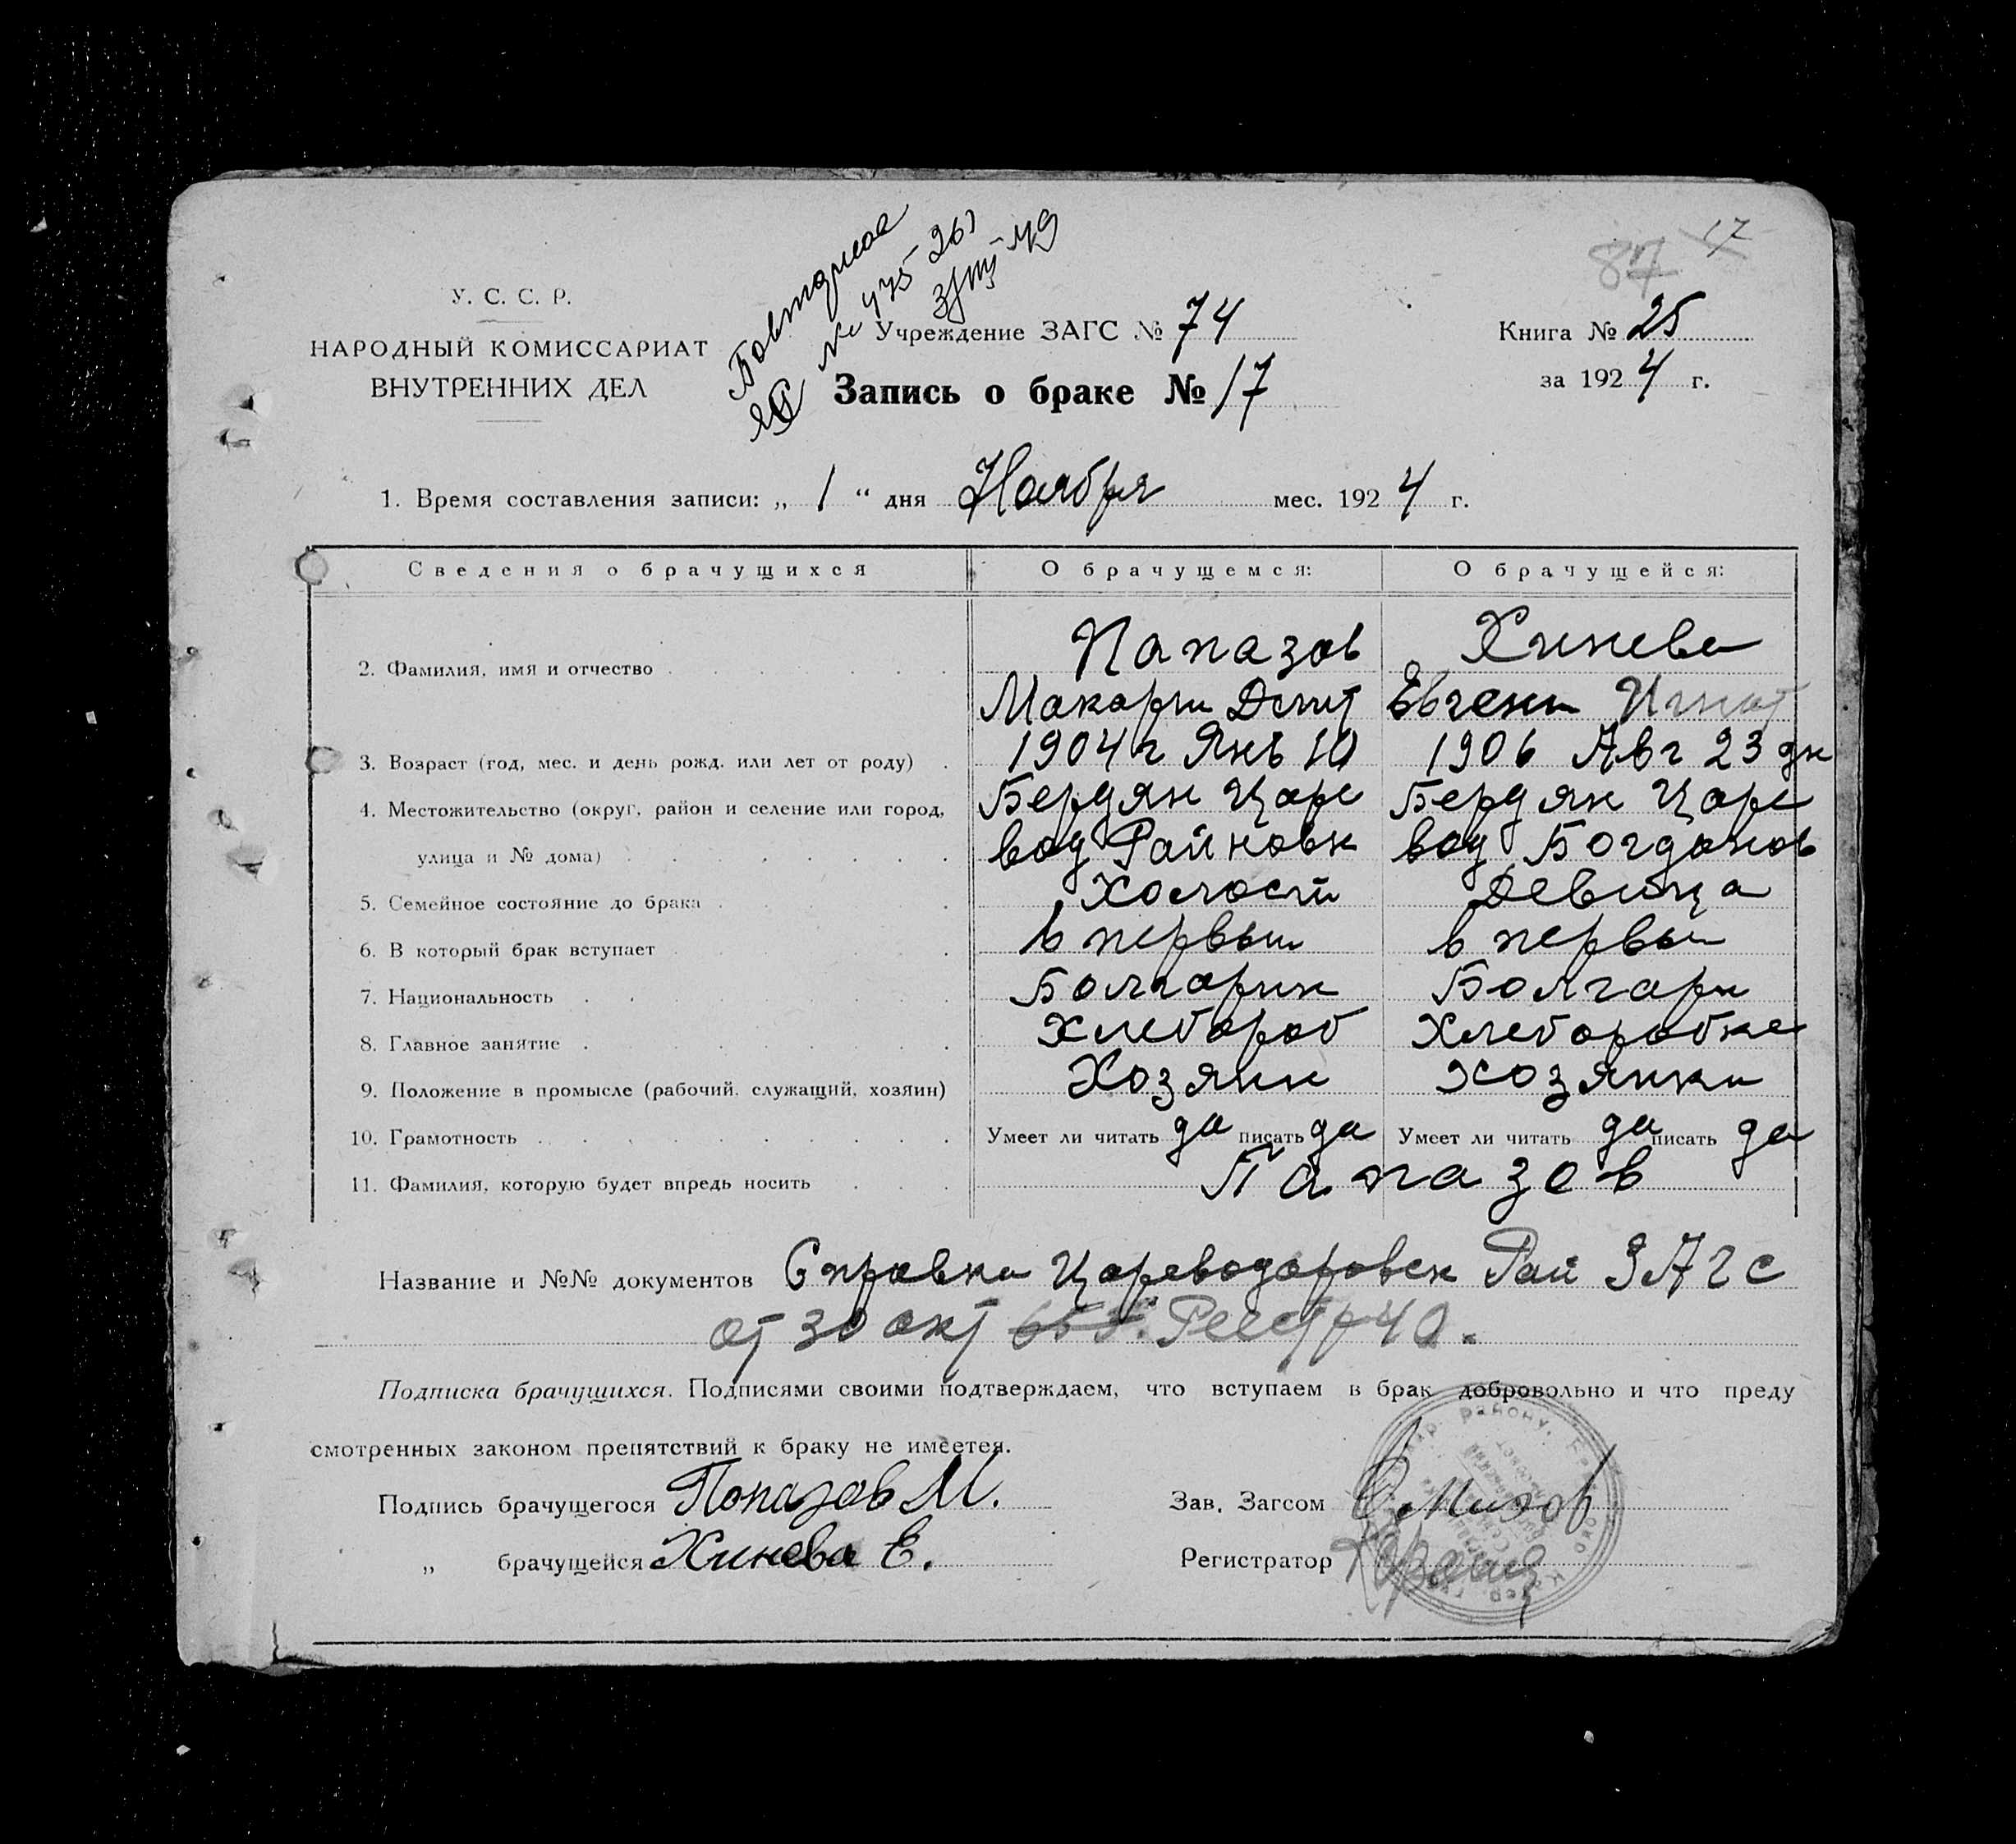 17
87
У. С. С. Р.
НАРОДНЫЙ КОМИССАРИАТ
ВНУТРЕННИХ ДЕЛ
Учреждение ЗАГС № 74
Запись о браке № 17
Книга № 25
за 1924 г.
1. Время составления записи: „ 1 “ дня Ноября мес. 1924 г.
Сведения о брачущихся О брачущемся: О брачущейся:
2. Фамилия, имя и отчество Папазов Хинева
Макари Дмит Евгени Игнат
3. Возраст (год, мес. и день рожд. или лет от роду) 1904 г Янв 10 1906 Авг 23 дн
4. Местожительство (округ, район и селение или город, Бердян Царе Бердян Царе
улица и № дома) вод Райновк вод Богданов
5. Семейное состояние до брака Холости Девица
6. В который брак вступает в первы в первы
7. Национальность Болгарин Болгари
8. Главное занятие Хлебороб Хлеборобка
9. Положение в промысле (рабочий, служащий, хозяин) Хозяин Хозянка
10. Грамотность Умеет ли читать да писать да Умеет ли читать да писать да
11. Фамилия, которую будет впредь носить Папазов
Название и №№ документов Справка Цареводаровск Рай ЗАГС
от 30 окт Реестр 40.
Подписка брачущихся. Подписями своими подтверждаем, что вступаем в брак добровольно и что преду
смотренных законом препятствий к браку не имеется.
Подпись брачущегося Попазов М. Зав. Загсом
„ брачущейся Хинева Е. Регистратор
району